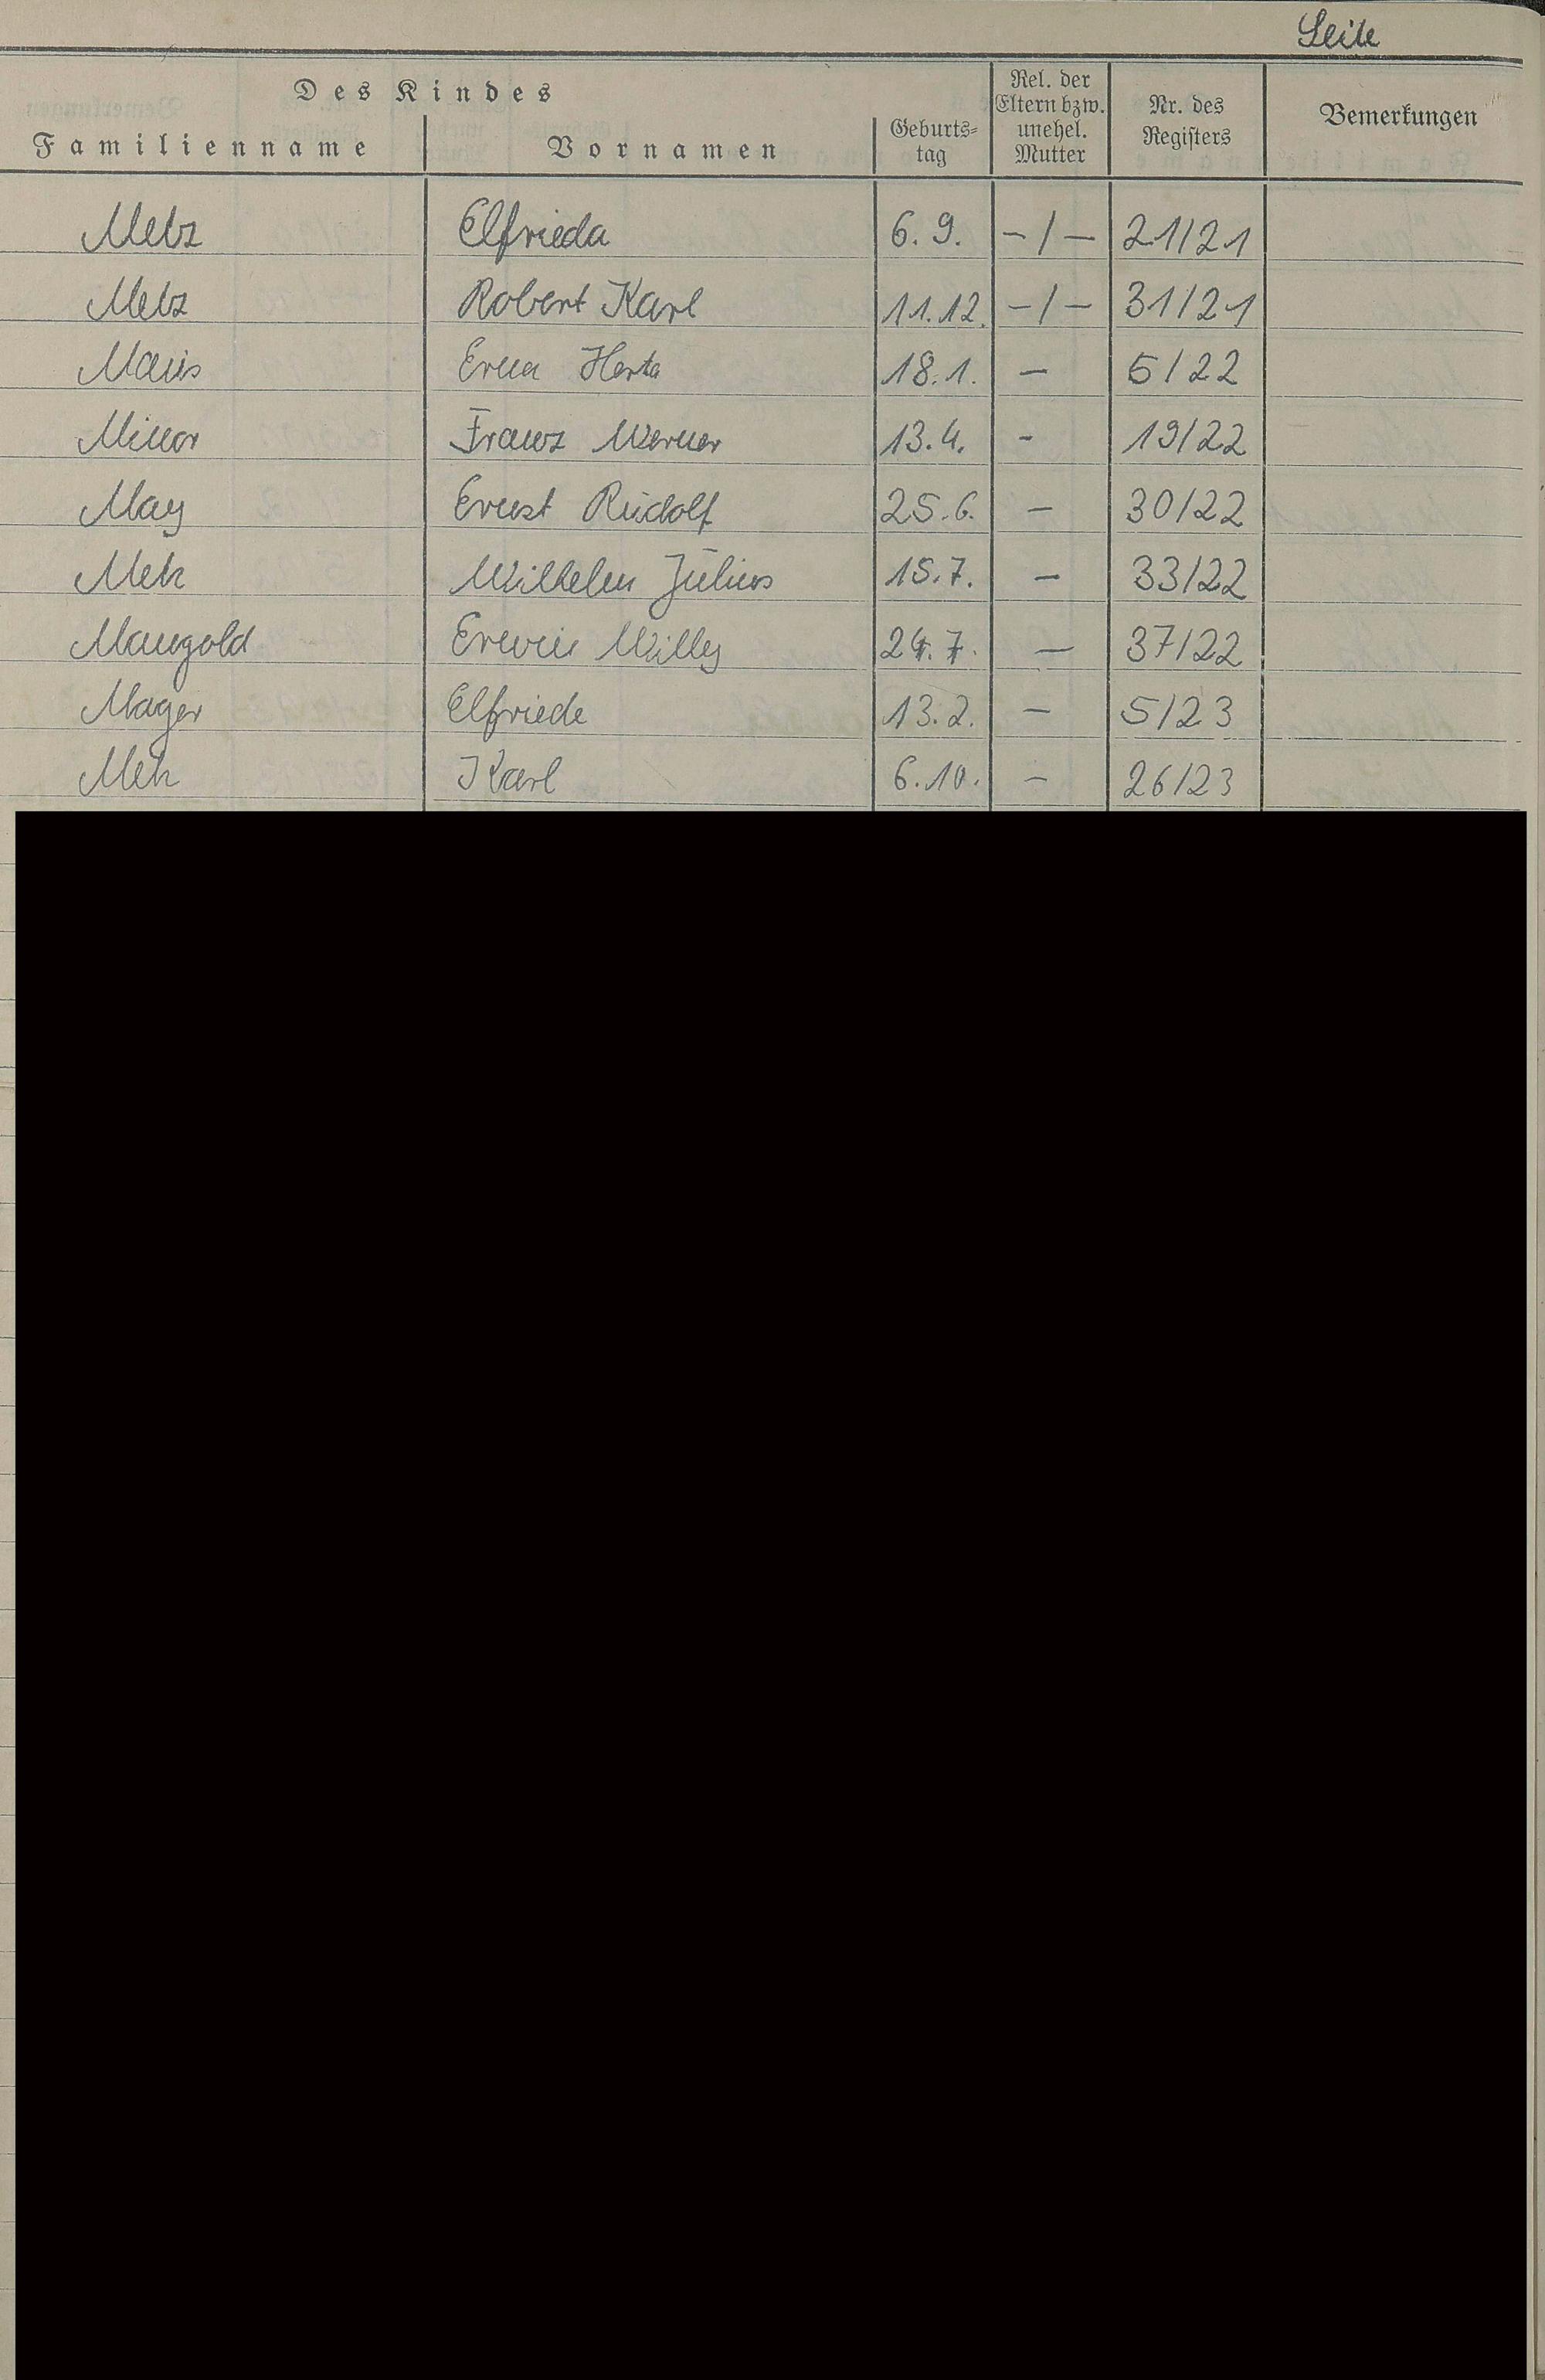 Seite
Des Kindes
Familienname Vornamen Geburts-tag Rel. der Eltern bzw. unehel. Mutter Nr. des Registers Bemerkungen
Metz Elfrieda 6. 9. - / - 21/21
Metz Robert Karl 11. 12. - / - 31/21
Maus Erna Herta 18. 1. - 5/22
Minor Franz Werner 13. 4. - 19/22
May Ernst Rudolf 25. 6. - 30/22
Wilhelm Julius 15. 7. - 33/22
Mangold Erwin Willy 7. - 37/22
Mager Elfriede 13. 2. - 5/23
Karl 6. 10. - 26/23